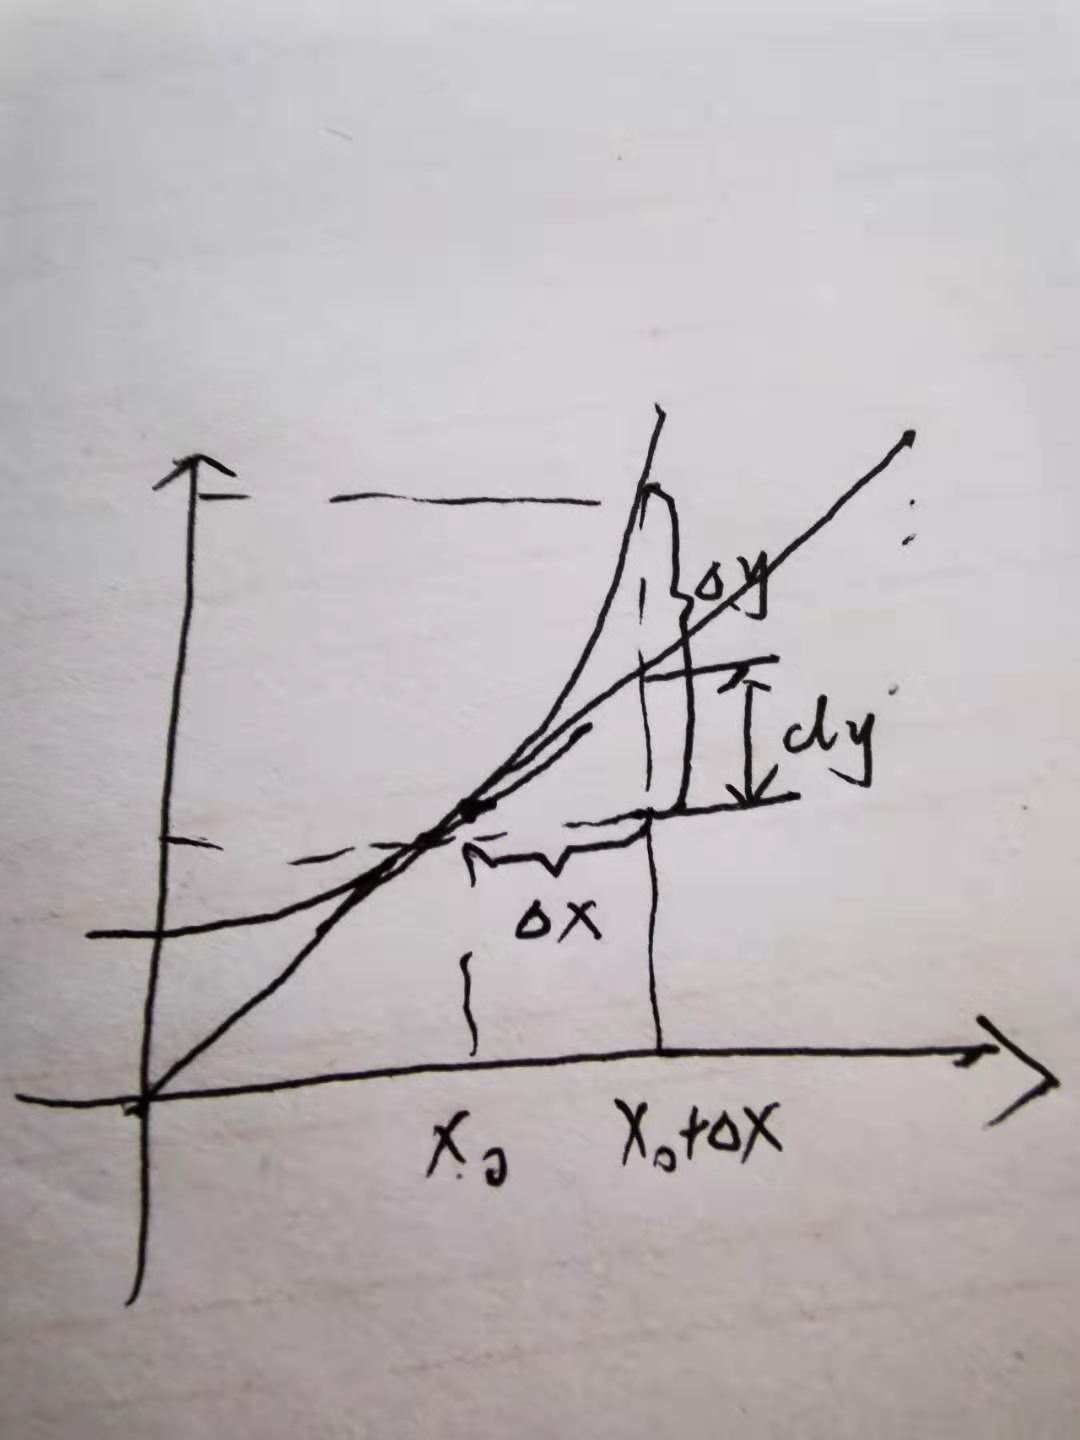 Δy
dy
Δx
x₀
x₀+Δx